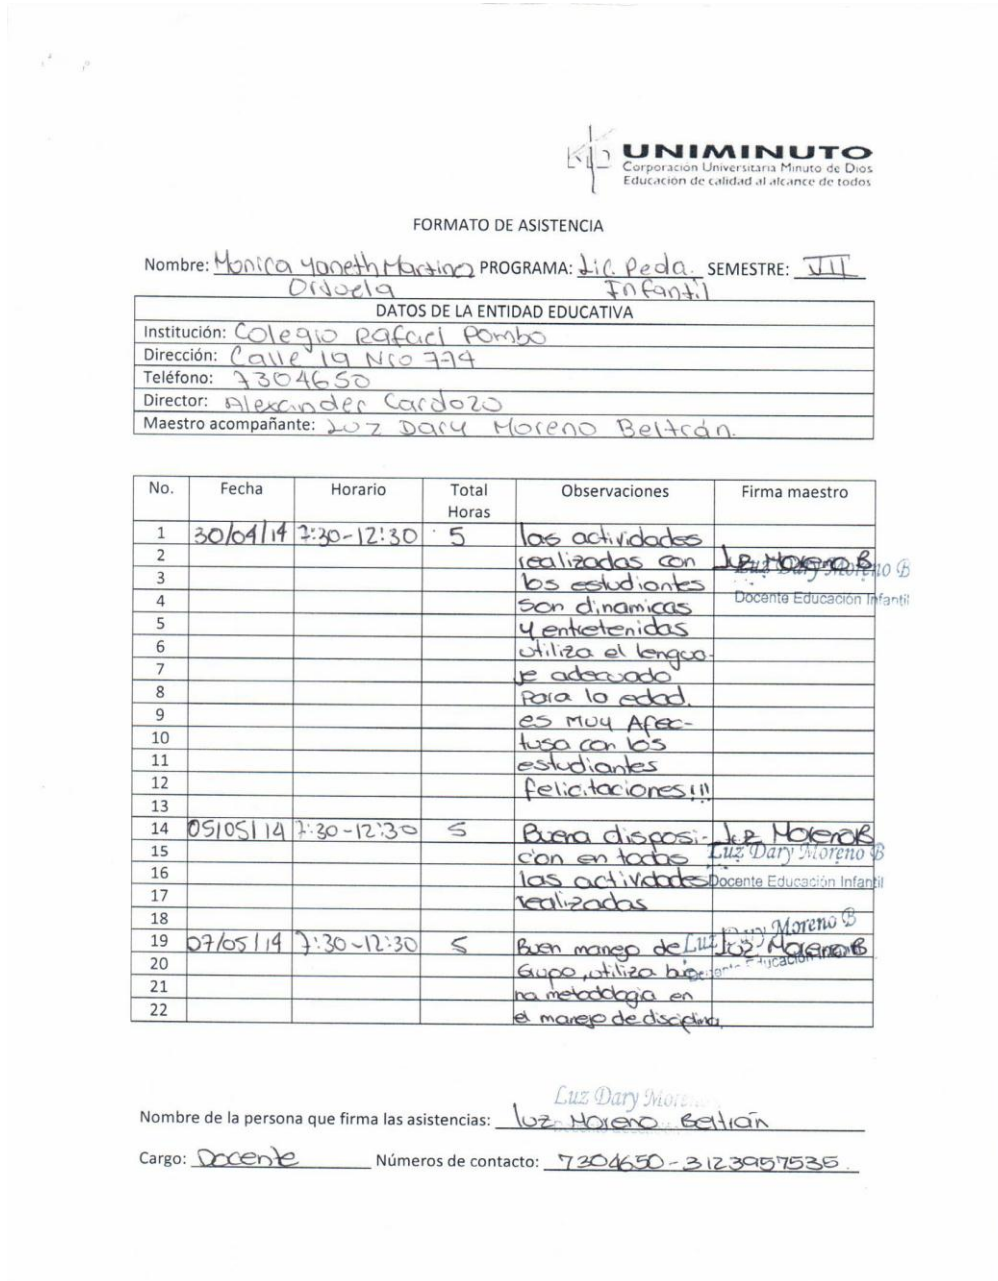 UNIMINUTO
Corporación Universitaria Minuto de Dios
Educación de calidad al alcance de todos
FORMATO DE ASISTENCIA
Nombre: Monica Yaneth Martinez PROGRAMA: Lic. Peda. SEMESTRE: VII
Orjuela Infantil
DATOS DE LA ENTIDAD EDUCATIVA
Institución: Colegio Rafael Pombo
Dirección: Calle 19 Nro 774
Teléfono: 7304650
Director: Alexander Cardozo
Maestro acompañante: Luz Dary Moreno Beltrán.
No. Fecha Horario Total Horas Observaciones Firma maestro
1 30/04/14 7:30-12:30 5 las actividades
2 realizadas con Luz Moreno B
Luz Dary Moreno B
3 los estudiantes
Docente Educación Infantil
4 son dinamicas
5 y entretenidas
6 utiliza el lengua-
7 je adecuado
8 para la edad.
9 es muy Afec-
10 tusa con los
11 estudiantes
12 felicitaciones!!!
13
14 05/05/14 7:30-12:30 5 Buena disposi- Luz Moreno B
15 con en todas Luz Dary Moreno B
16 las actividades Docente Educación Infantil
17 realizadas
18 Luz Dary Moreno B
19 07/05/14 7:30-12:30 5 Buen manejo de Luz Moreno B
Docente Educación Infantil
20 Grupo, utiliza bue
21 na metodologia en
22 el manejo de disciplina.
Luz Dary Moreno
Nombre de la persona que firma las asistencias: Luz Moreno Beltrán
Cargo: Docente Números de contacto: 7304650-3123957535.